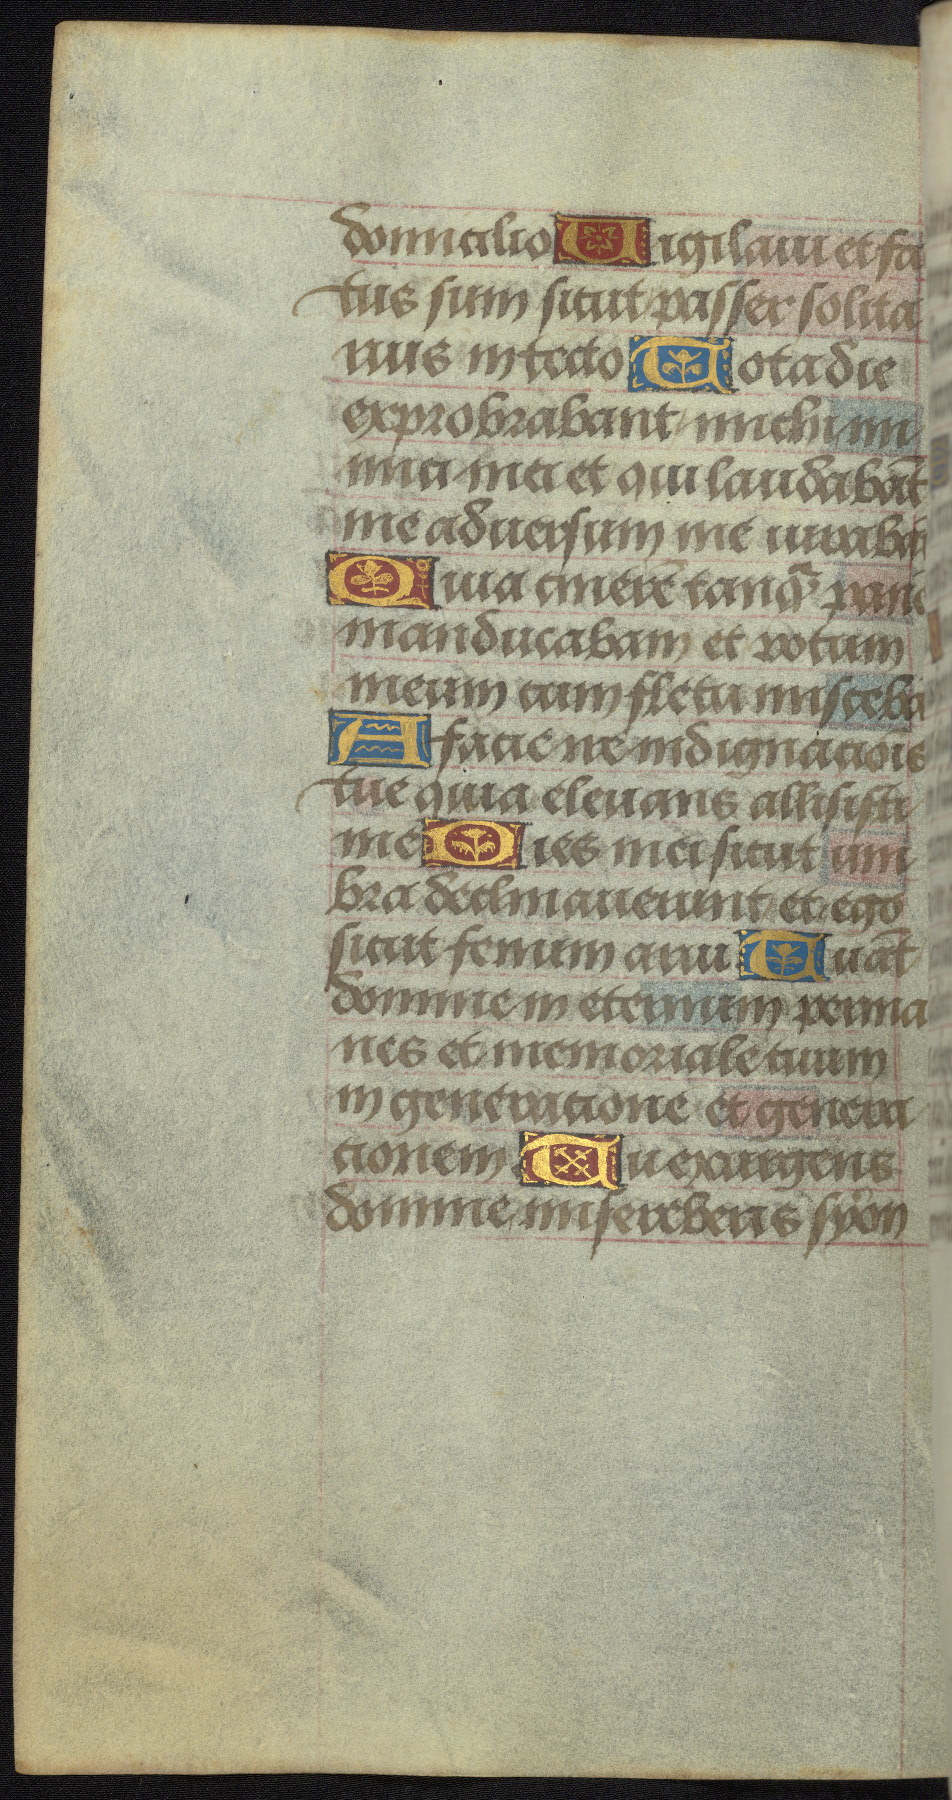 domicilio Vigilavi et fa
tus sum sicut passer solita
rius in tecto Tota die
exprobrabant michi ini
mici mei et qui laudabāt
me adversum me iurabāt
Quia cinerē tanqᵃ̄ panē
manducabam et potum
meum cum fletu misceba
A facie ire indignaciōis
tue quia elevans allisisti
me Dies mei sicut um
bra declinaverunt et ego
sicut fenum arui Tu aūt
domine in eternum perma
nes et memoriale tuum
in generatione et genera
cionem Tu exurgens
domine misereberis syon